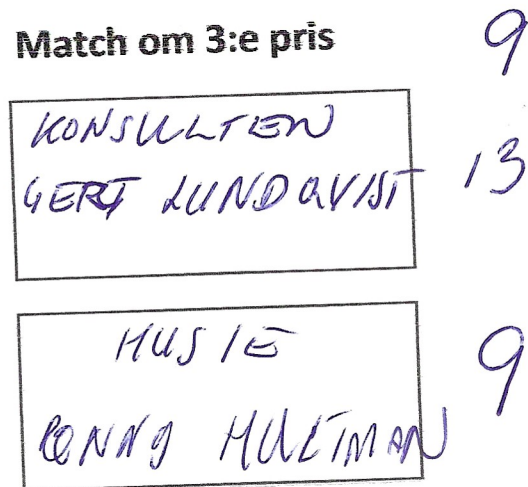 Match om 3:e pris
9
KONSULTEN
GERT LUNDQVIST 13
HUSIE 9
RONNY HULTMAN